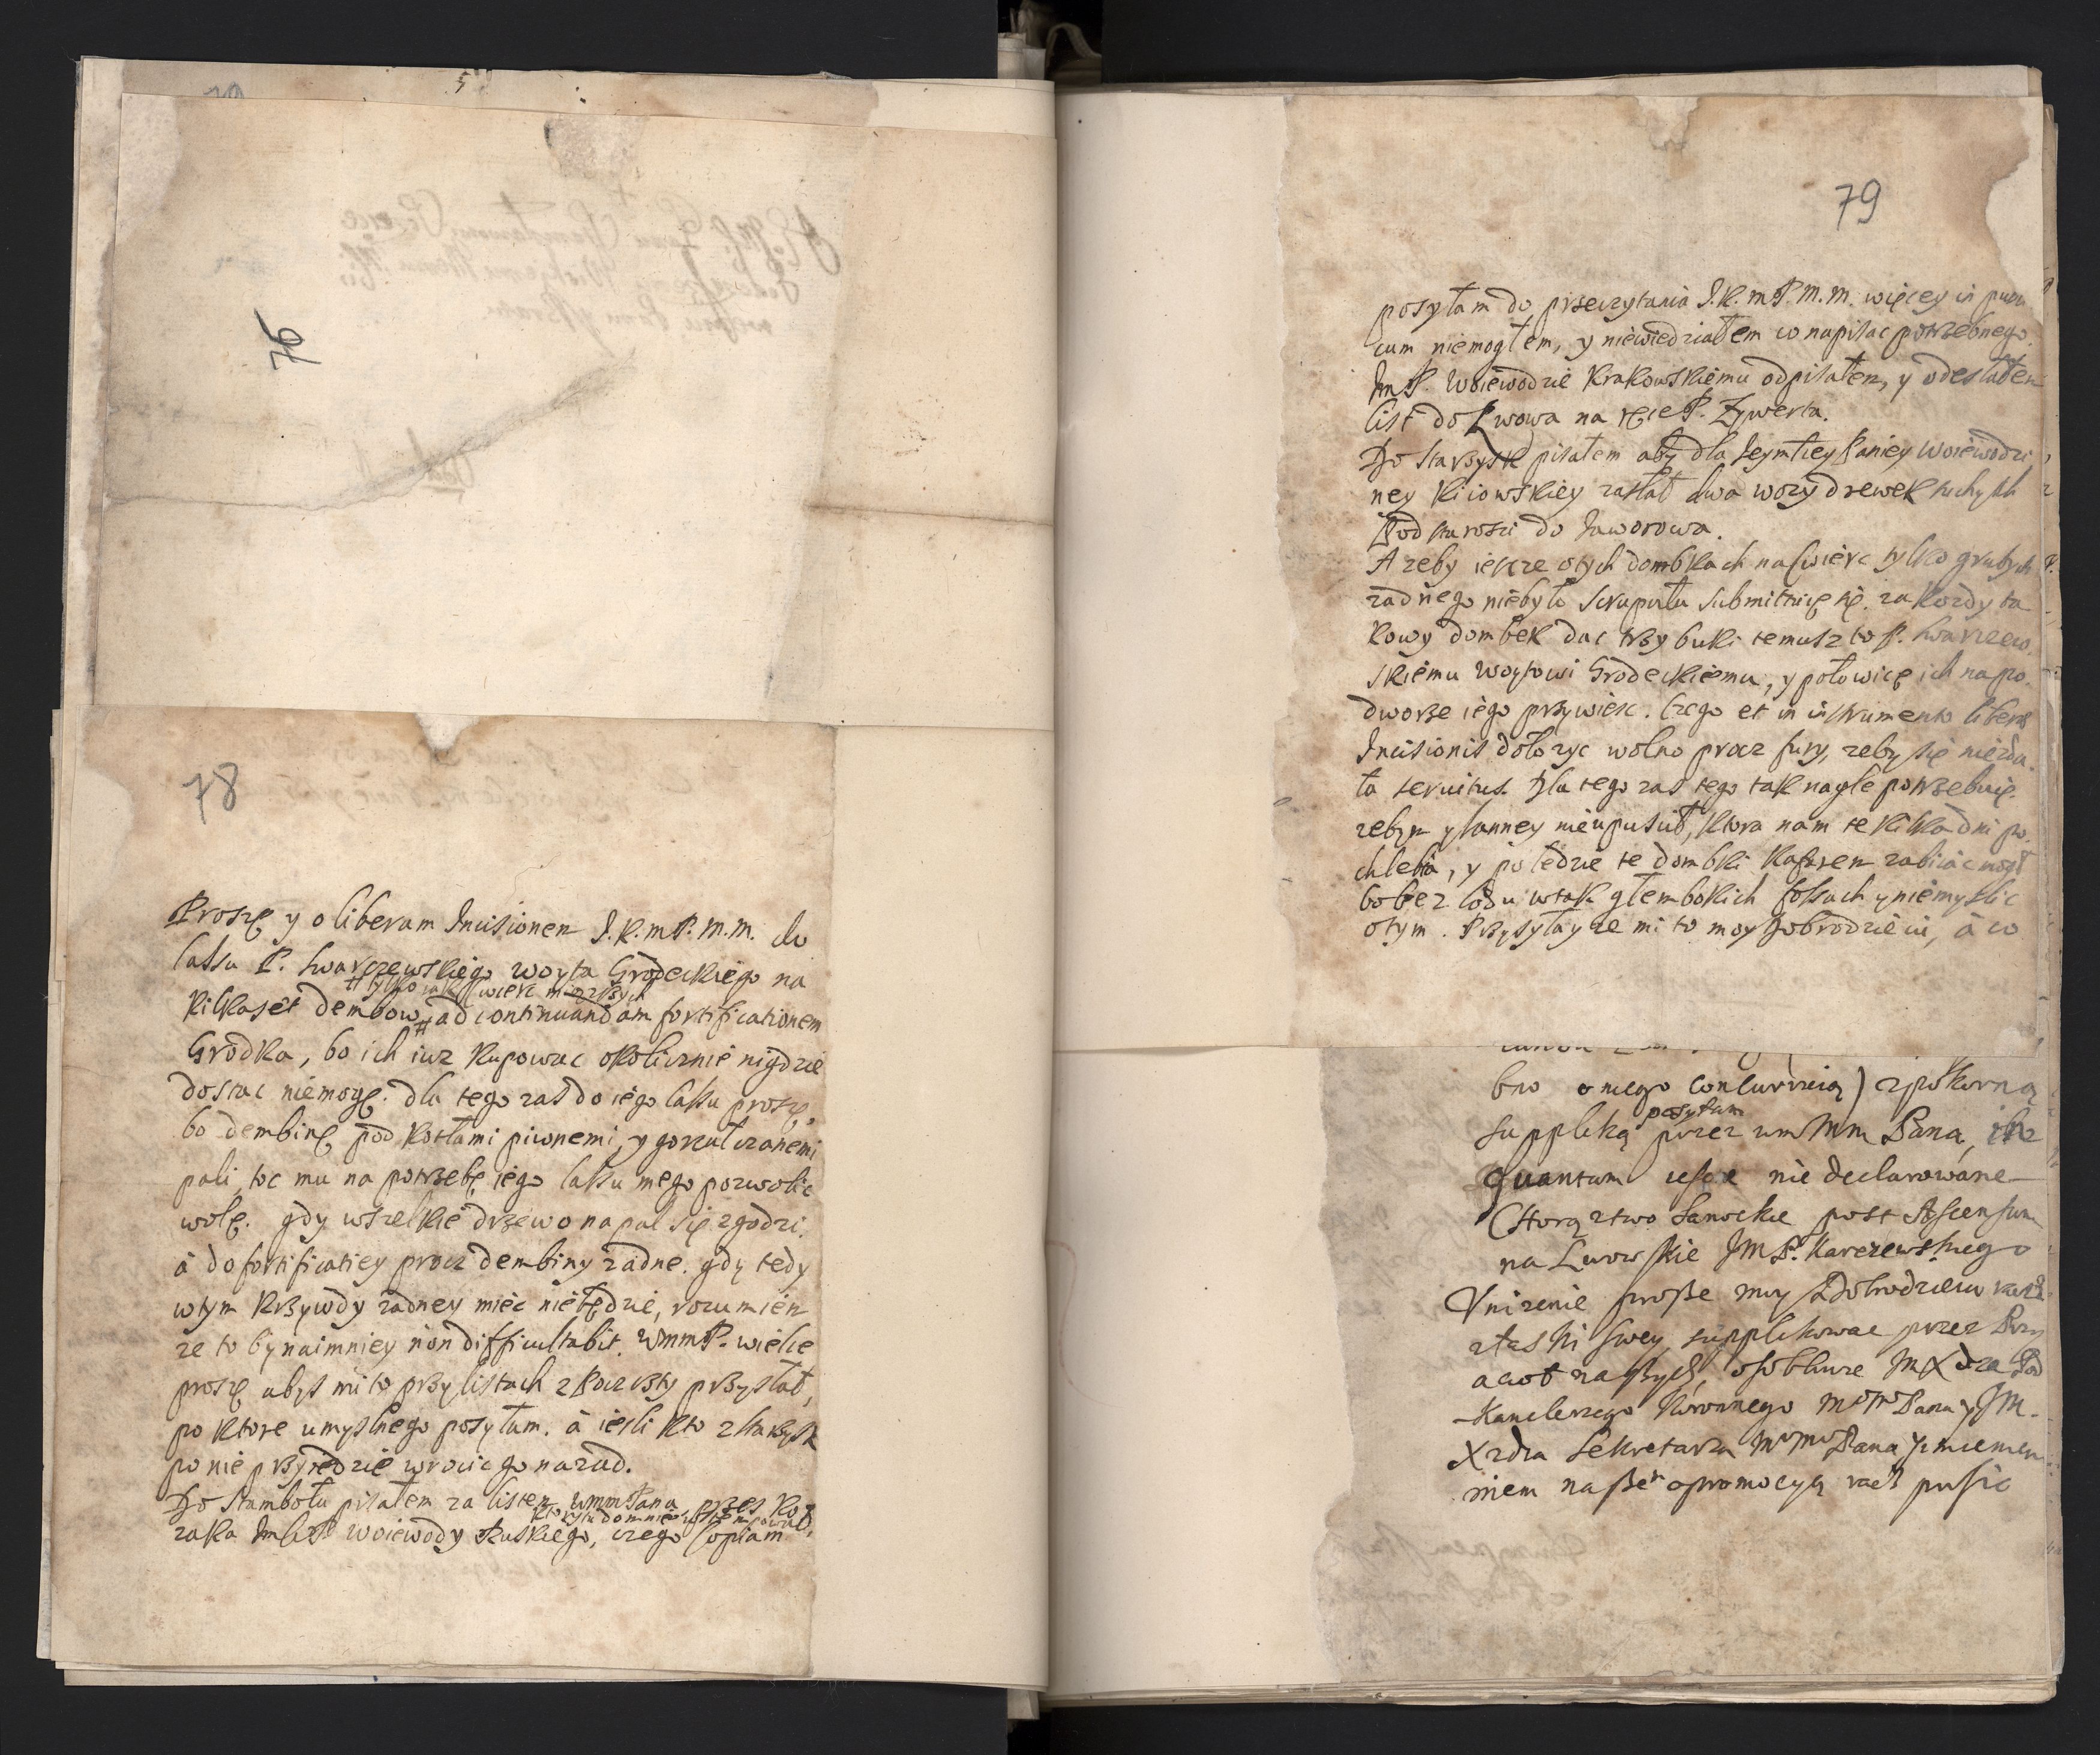 76
78
Proszę y o liberam Incisionem J.K.mP.M.M. do
lassu P. Swarczewskiego woyta Grodeckiego na
# tylko iak ćwierc mięzszych
kilkaset dembow # ad continuandam fortificationem
Grodka, bo ich iuz kupowac okolicznie nigdzie
dostac niemogę. dla tego zas do iego lassu proszę,
bo dembinę pod kotłami piwnemi, y gorzałczanemi
pali, toc mu na potrzebę iego lassu mego pozwolic
wolę. gdy wszelkie drzewo na pal się zgodzi.
à do fortificatiey procz dembiny zadne. gdy tedy
wtym krzywdy zadney miec niebędzie, rozumiem
ze to bynaimniey non difficultabit. WmmP. wielce
proszę abys mi to przy listach z Poczty przysłał,
po ktore umyslnego posyłam. à iesli kto z Starzysk
po nie przyiedzie wrocic go nazad.
Do Stambołu pisałem za listem WmmPana przez Ko
zaka Jmści P. Woiewody Ruskiego, czego Copiam
79
posyłam do przeczytania J.K.mP.M.M. więcey in pun
ctum niemogłem, y niewiedziałem co napisac potrzebnego.
JmP. Woiewodzie Krakowskiemu odpisałem, y odesłałem
list do Lwowa na ręce P. Zywerta.
Do Starzysk pisałem aby dla Jeymsciey Paniey Woiewodzi
ney Kiiowskiey zasłał dwa wozy drewek suchych
Podstarosci do Jaworowa.
A zeby ieszcze otych dombkach na ćwierc tylko grubych
zadnego niebyło scrupułu submittuię się za kozdy ta
kowy dombek dac trzy buki temusz to P. Swarczew
skiemu woytowi Grodeckiemu, y połowicę ich na po
dworze iego przywiesc. Czego et in instrumento liberæ
Incisionis dołozyc wolno procz fury, zeby się niezda
ła servitus. Dla tego zas tego tak nagle potrzebuię.
zebym y sanney nieupuscił, ktora nam te kilka dni po
chlebia, y po ledzie te dombki kafarem zabiiac mogł
bo bez lodu wtak głembokich fossach y niemyslic
otym. Przysyłayze mi to moy Dobrodzieiu, à co
bno o niego Concurruią) z pokorną
posyłam
suppliką przez wm Mm Pana, ibz
Quantum iesce nie declarowane
Chorąztwo Sanockie post Ascensum
na Lwowskie JMP. Karczewskiego
Vnizenie prosze moy Dobrodzieiu racz
z łaski swey supplikowac przez Przy
aciol naszych, osobliwie JmXdza Pod
Kanclerzego Koronnego MomoPana y JM.
Xdza Sekretarza MomoPana y imieniem
niem naszem o promocyą racz prosic